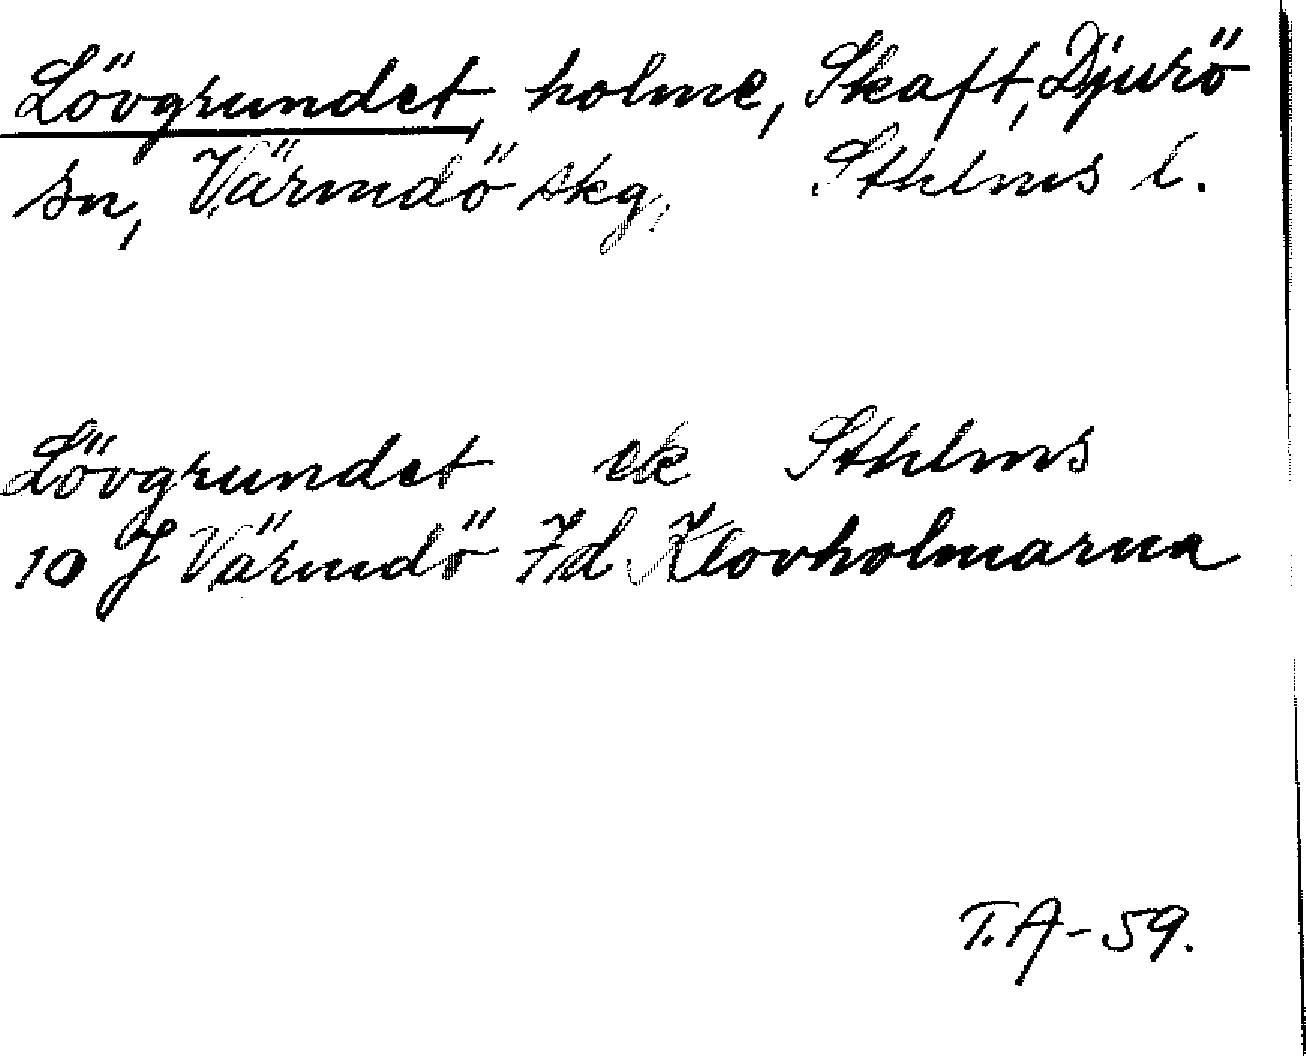 Lövgrundet, holme, Skaft, Djurö
sn, Värmdö skg, Sthlms l.
Lövgrundet ek Sthlms
10 J Värmdö 7d Klovholmarna
T.A-59.